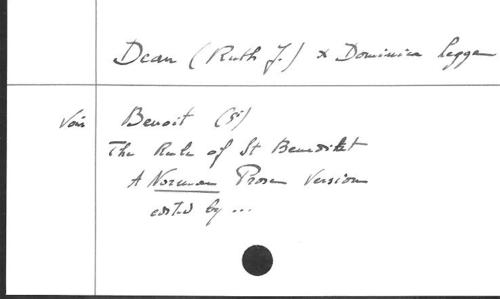 Dean (Ruth J.) & Dominica Legge
Voir Benoit (St)
The Rule of St Benedict
A Norman Prose Version
edited by ...